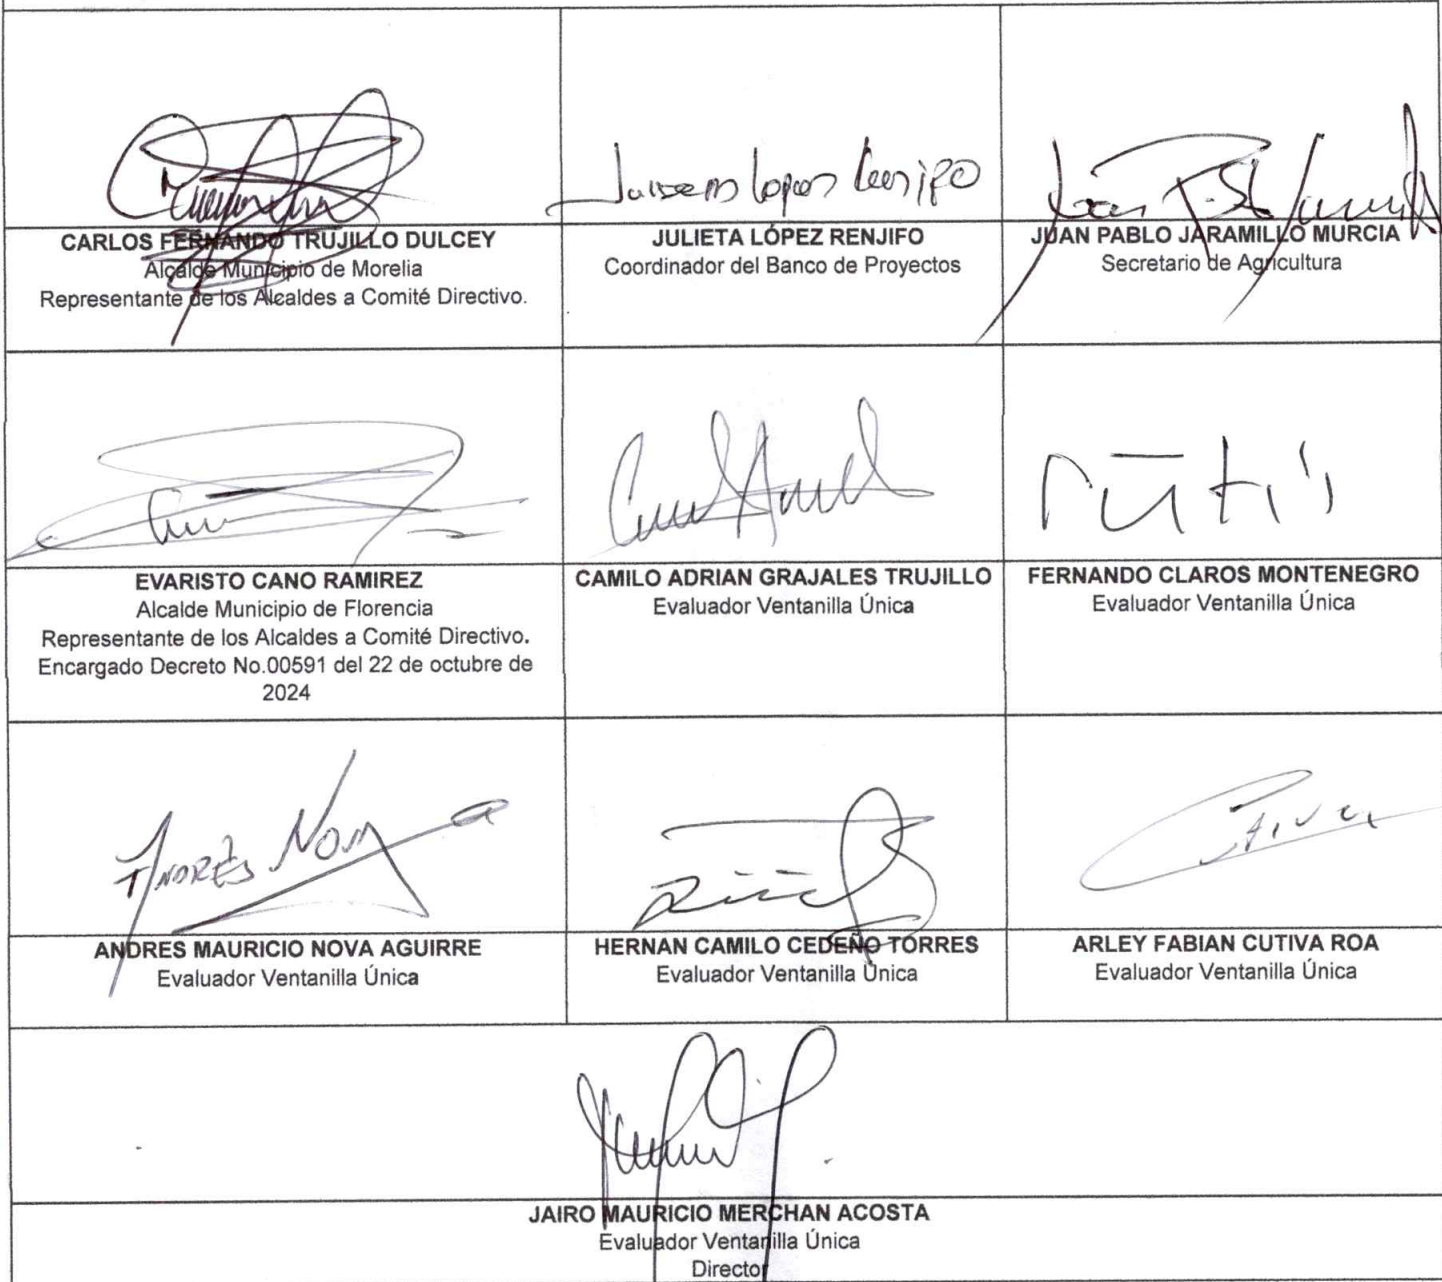 CARLOS FERNANDO TRUJILLO DULCEY
Alcalde Municipio de Morelia
Representante de los Alcaldes a Comité Directivo.
JULIETA LÓPEZ RENJIFO
Coordinador del Banco de Proyectos
JUAN PABLO JARAMILLO MURCIA
Secretario de Agricultura
EVARISTO CANO RAMIREZ
Alcalde Municipio de Florencia
Representante de los Alcaldes a Comité Directivo.
Encargado Decreto No.00591 del 22 de octubre de
2024
CAMILO ADRIAN GRAJALES TRUJILLO
Evaluador Ventanilla Única
FERNANDO CLAROS MONTENEGRO
Evaluador Ventanilla Única
ANDRÉS NOVA
ANDRES MAURICIO NOVA AGUIRRE
Evaluador Ventanilla Única
HERNAN CAMILO CEDEÑO TORRES
Evaluador Ventanilla Única
ARLEY FABIAN CUTIVA ROA
Evaluador Ventanilla Única
JAIRO MAURICIO MERCHAN ACOSTA
Evaluador Ventanilla Única
Director